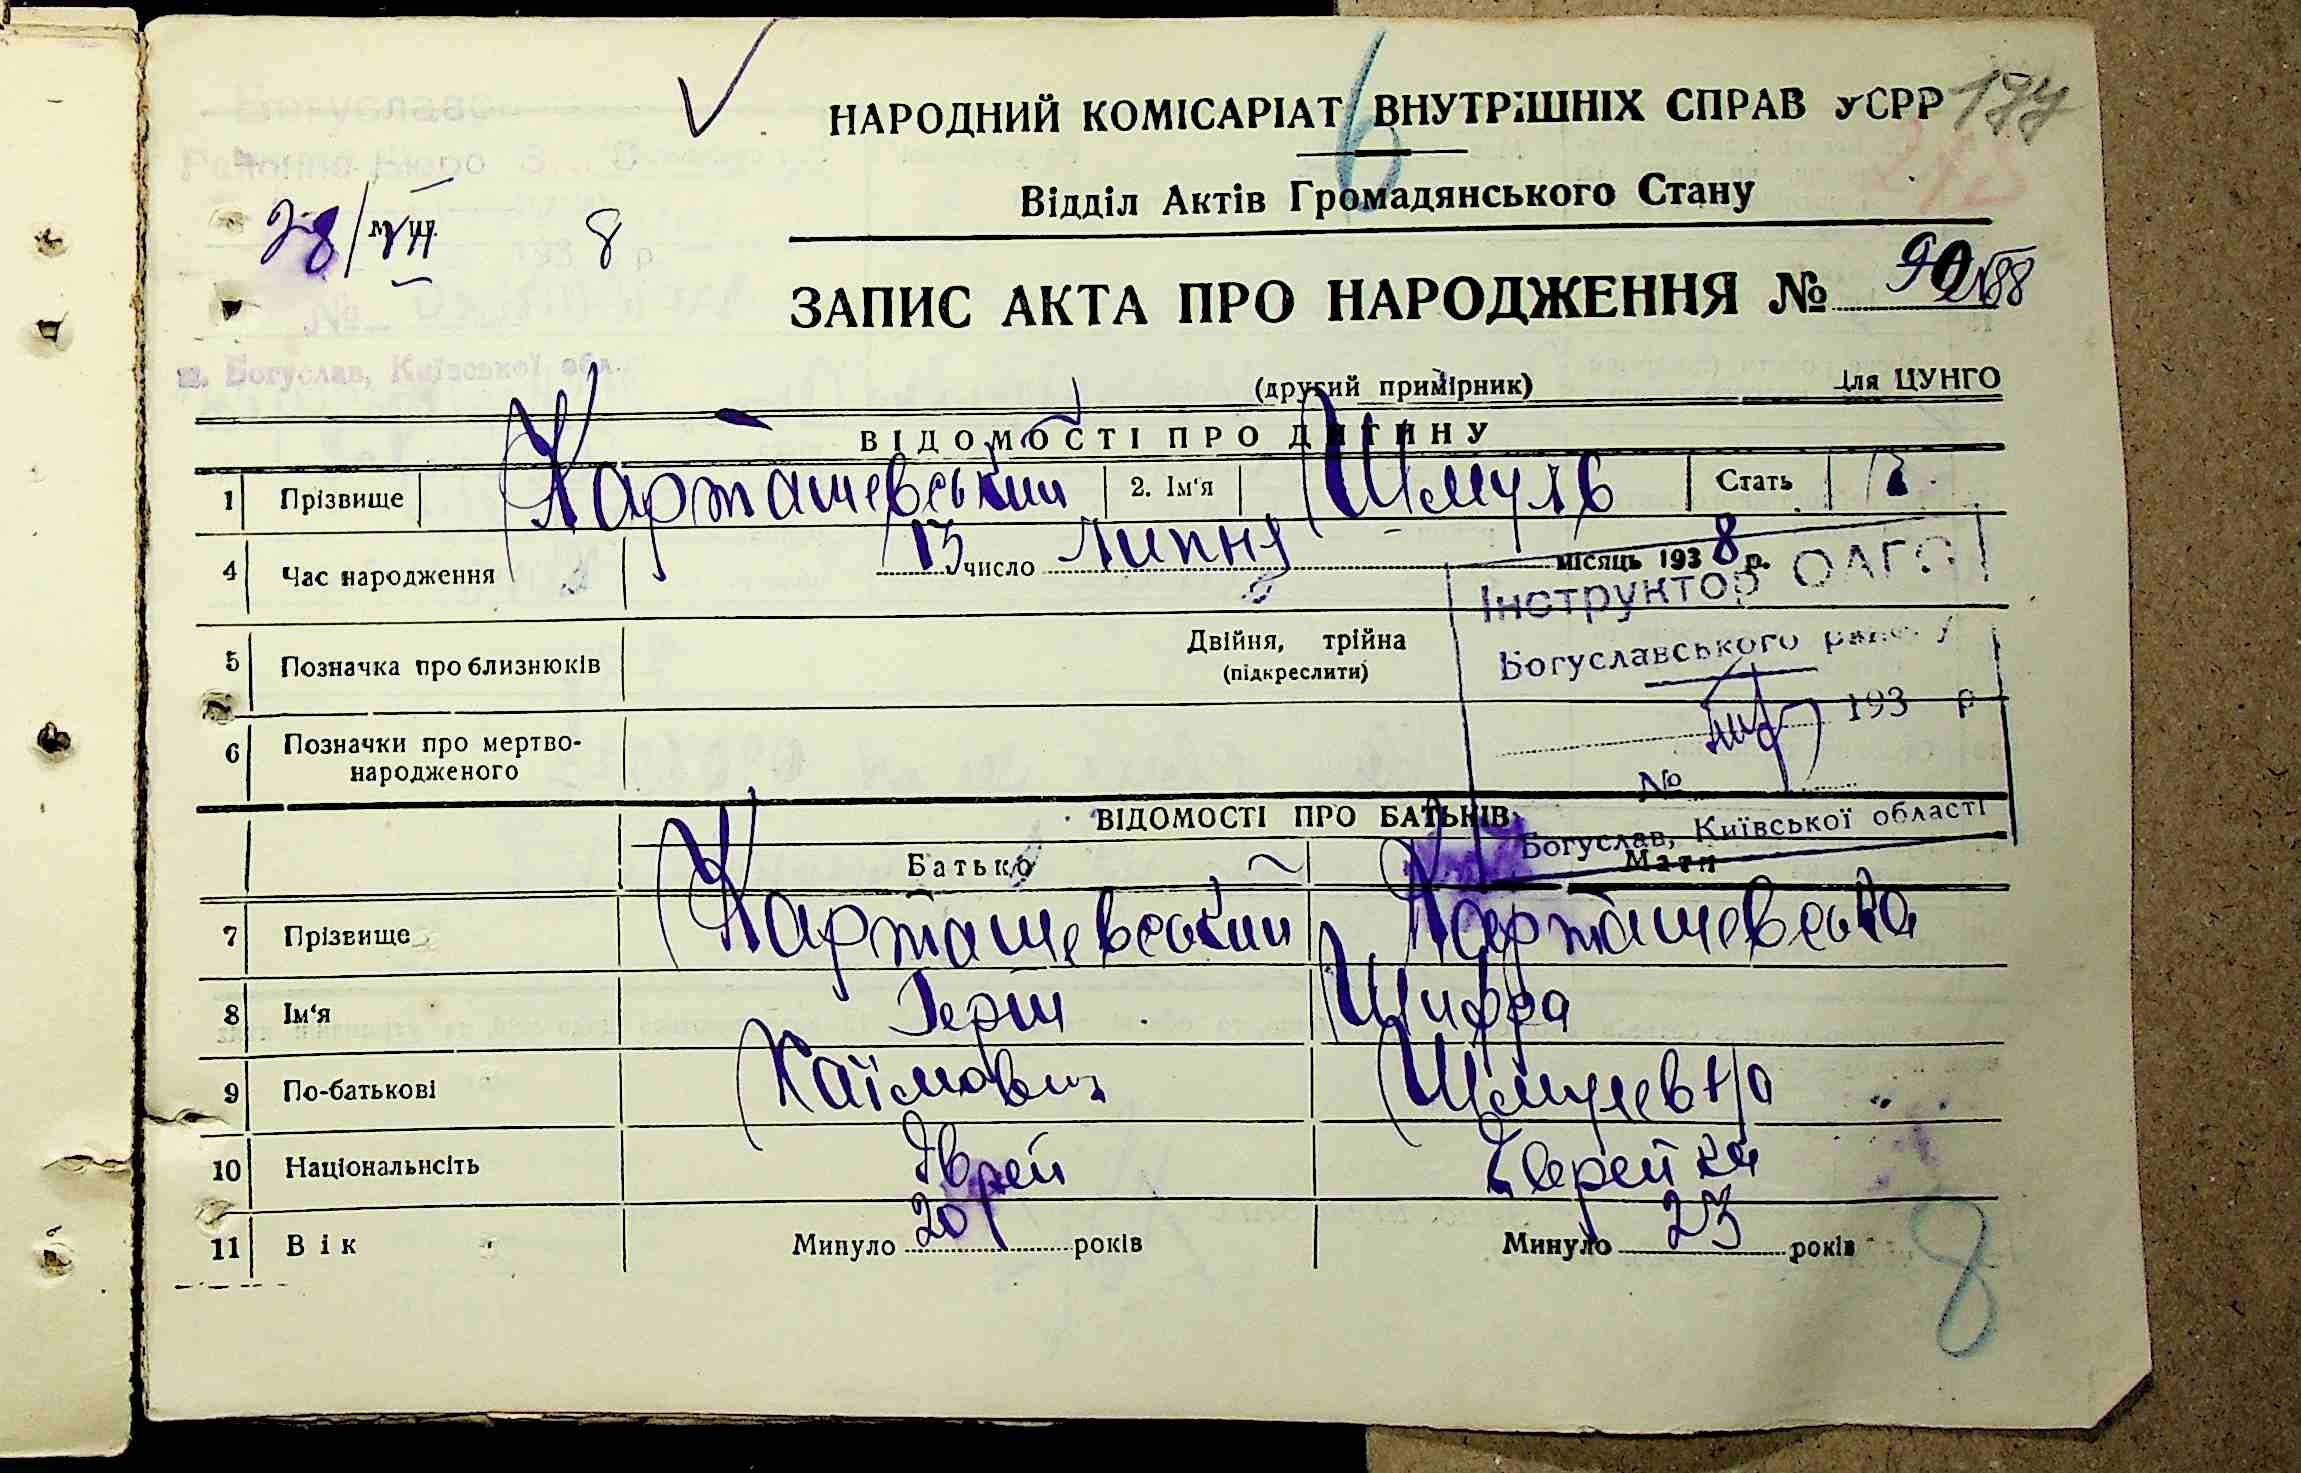 6
177
НАРОДНИЙ КОМІСАРІАТ ВНУТРІШНІХ СПРАВ УСРР
Відділ Актів Громадянського Стану
28/VII 8
ЗАПИС АКТА ПРО НАРОДЖЕННЯ № 90
м. Богуслав, Київської обл.
(другий примірник) Для ЦУНГО
ВІДОМОСТІ ПРО ДИТИНУ
1 Прізвище Карташевський 2. Ім'я Шмуль Стать
4 Час народження 13 число липня місяць 1938 р.
Інструктор ОАГС
Богуславського району
193 р
№
Богуслав, Київської області
5 Позначка про близнюків Двійня, трійна
(підкреслити)
6 Позначки про мертво-
народженого
ВІДОМОСТІ ПРО БАТЬКІВ
Батько Мати
7 Прізвище Карташевський Карташевська
8 Ім'я Герш Шифра
9 По-батькові Хаїмович Шмулевна
10 Національнсіть Єврей Єврейка
11 Вік Минуло 20 років Минуло 23 років
8